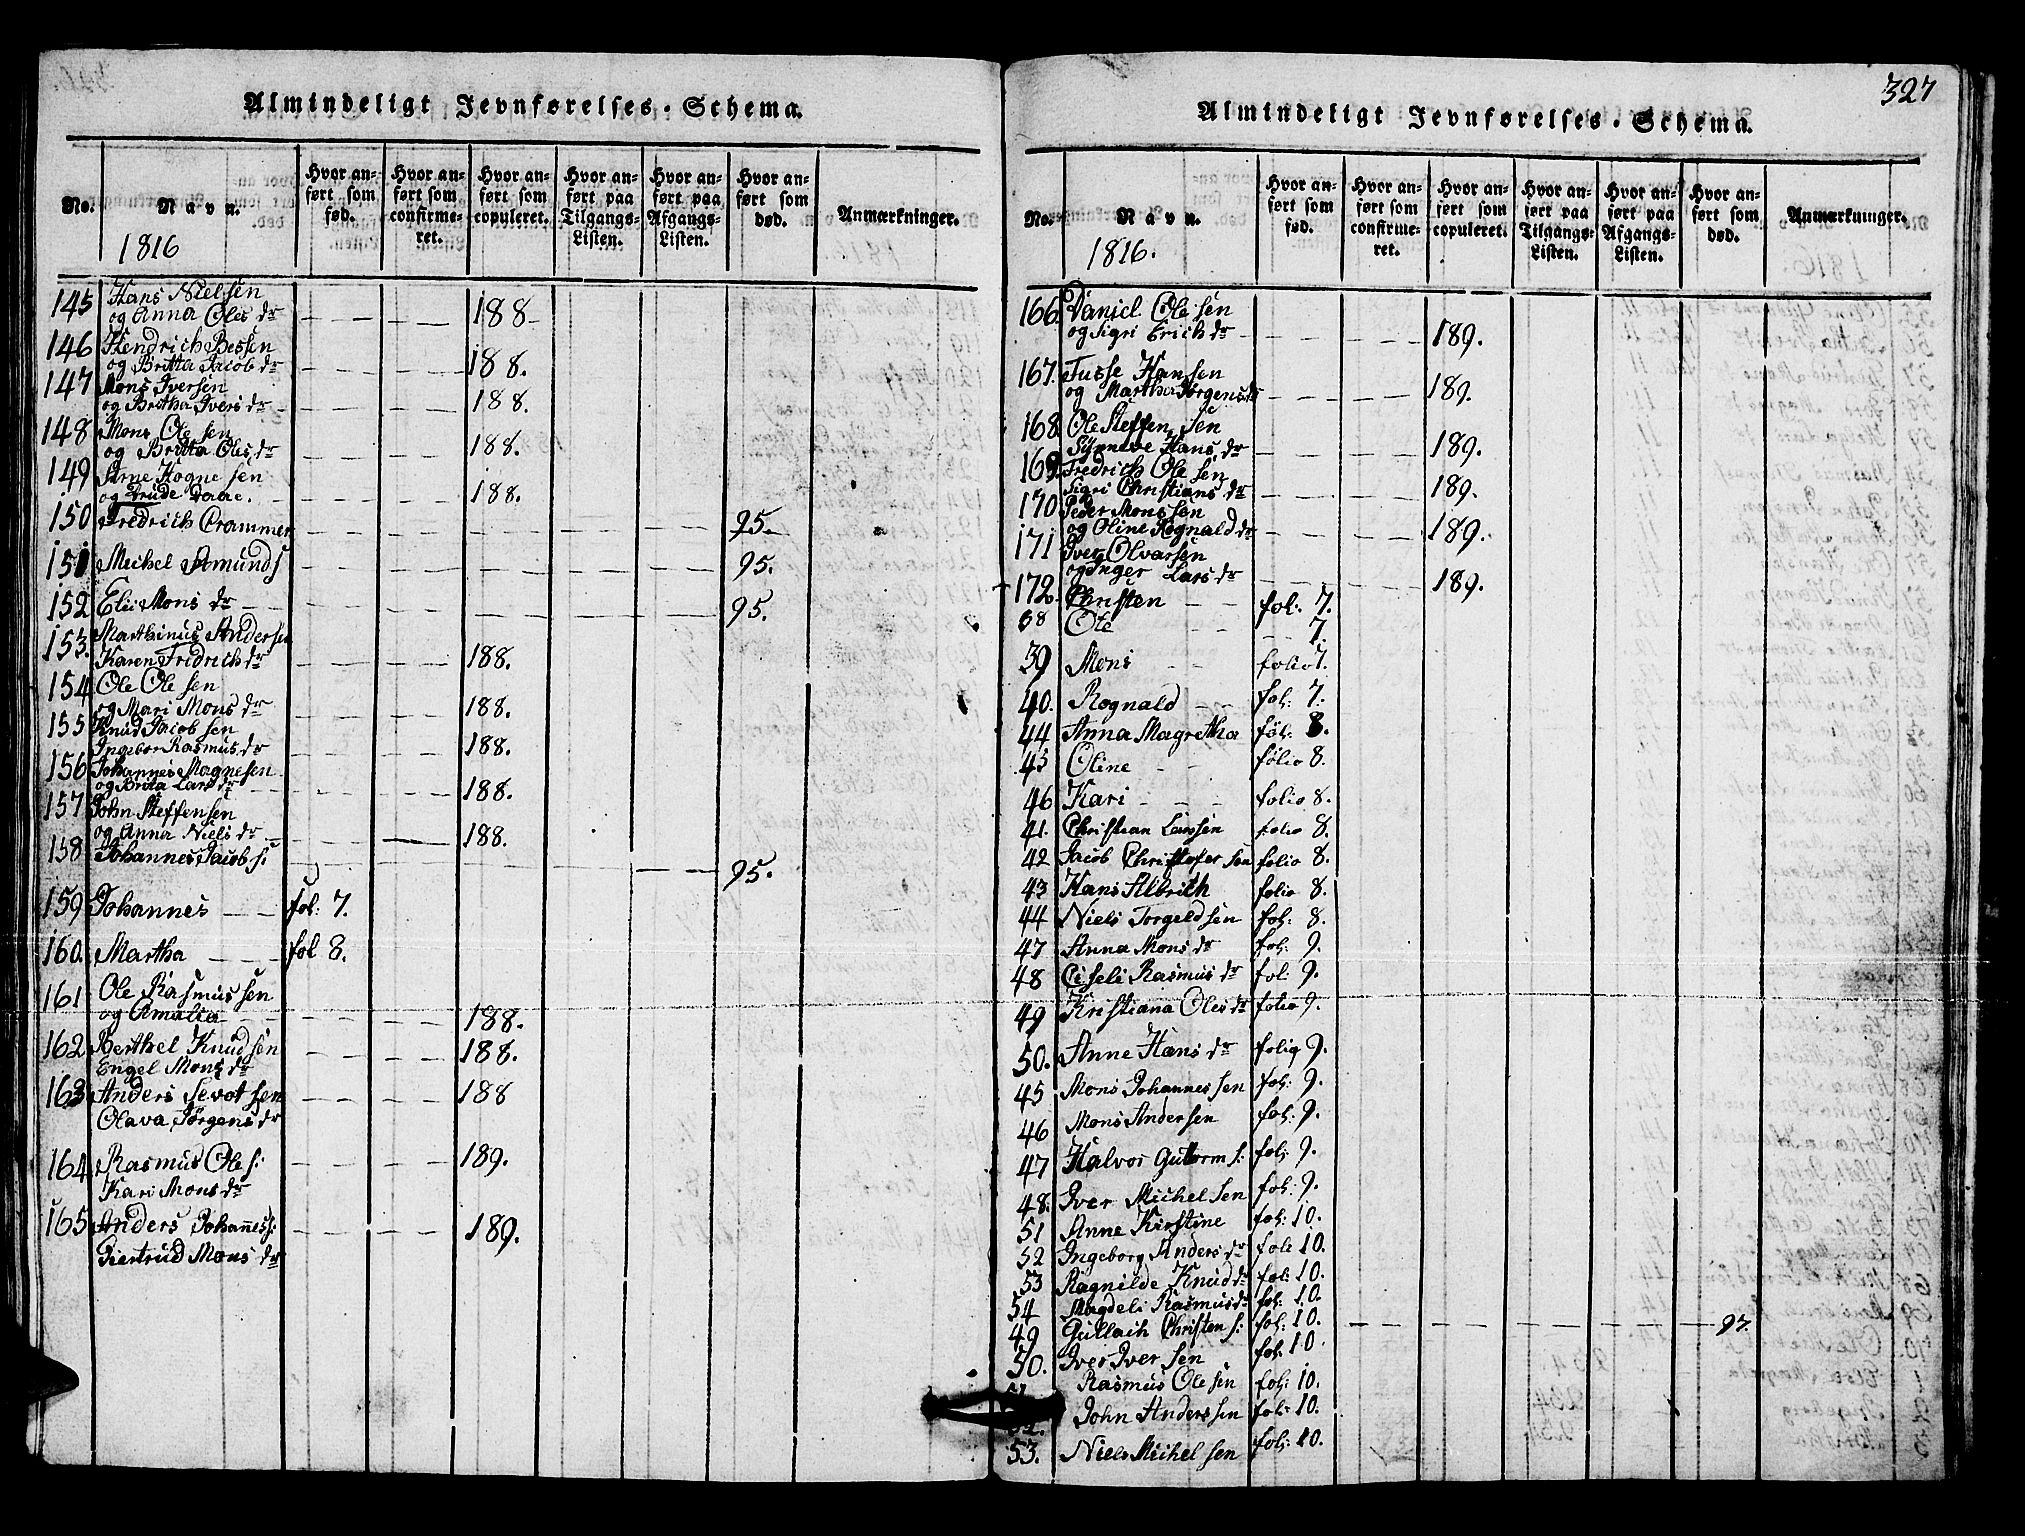 Almindeligt Jevnførelses-Schema.
No.
Navn.
1816
Hvor anført som fød.
Hvor anført som confirmeret.
Hvor anført som copuleret.
Hvor anført paa Tilgangs-Listen.
Hvor anført paa Afgangs-Listen.
Hvor anført som død.
Anmærkninger.
145 Hans Nielsen
og Anna Oles dr 188
146 Hendrich Bessen
og Britta Jacob dr 188.
147 Mons Iversen
og Britha Ivers dr 188.
148 Mons Olesen
og Britta Oles dr 188.
149 Arne Hognesen
og Drude Daae. 188.
150 Fredrich Crammer 95.
151 Michel Amunds 95.
152 Elie Mons dr 95.
153. Marthinus Andersen
Karen Fridrich dr 188.
154 Ole Olesen
og Mari Mons dr 188.
155 Knud Jacobsen
Ingebor Rasmus dr 188.
156 Johannes Magnesen
og Brita Lars dr 188.
157 John Steffensen
og Anna Niels dr 188.
158 Johannes Jacob s: 95.
159 Johannes fol: 7.
160. Martha fol 8.
161 Ole Rasmussen
og Amalia 188.
162 Berthel Knudsen 188.
Engel Mons dr
163 Anders Sevotsen 188
Olava Jørgens dr
164 Rasmus Ole s: 189.
Kari Mons dr
165 Anders Johanes s: 189.
Giertrud Mons dr
327
Almindeligt Jevnførelses-Schema.
No.
Navn.
1816.
Hvor anført som fød.
Hvor anført som confirmeret.
Hvor anført som copuleret.
Hvor anført paa Tilgangs-Listen.
Hvor anført paa Afgangs-Listen.
Hvor anført som død.
Anmærkninger.
166 Daniel Olesen
og Sigri Erich dr 189.
167. Tusse Hansen
og Martha Jørgens dr 189.
168 Ole Steffensen
Synneve Hans dr 189.
169 Fredrich Olesen
Sigri Christians dr 189.
170 Peder Monssen
og Oline Rognald dr 189.
171 Iver Olvarsen
og Inger Lars dr 189.
172 Christen fol: 7.
38 Ole 7.
39 Mons folio 7.
40. Rognald fol: 7.
44 Anna Magretha fol: 8.
45 Oline folio 8.
46 Kari folio 8.
41. Christian Larssen folio 8.
42 Jacob Christofersen folio 8.
43 Hans Albrith folio 8.
44 Niels Torgeldsen fol: 8.
47 Anna Mons dr fol: 9.
48 Ciseli Rasmus dr fol: 9.
49 Kristiana Oles dr folio 9.
50. Anne Hans dr folio 9.
45 Mons Johannessen fol: 9.
46 Mons Andersen fol: 9.
47 Halvor Gutorm s: fol: 9.
48. Iver Michelsen fol: 9.
51 Anne Kirstine fol: 10.
52 Ingeborg Anders dr fol: 10.
53 Ragnilde Knud dr fol: 10.
54 Magdeli Rasmus dr fol: 10.
49 Gullaich Christen s: fol: 10. 97.
50. Iver Iversen fol: 10
Rasmus Olesen fol: 10.
52. John Anderssen fol: 10.
53. Niels Michelsen fol: 10.